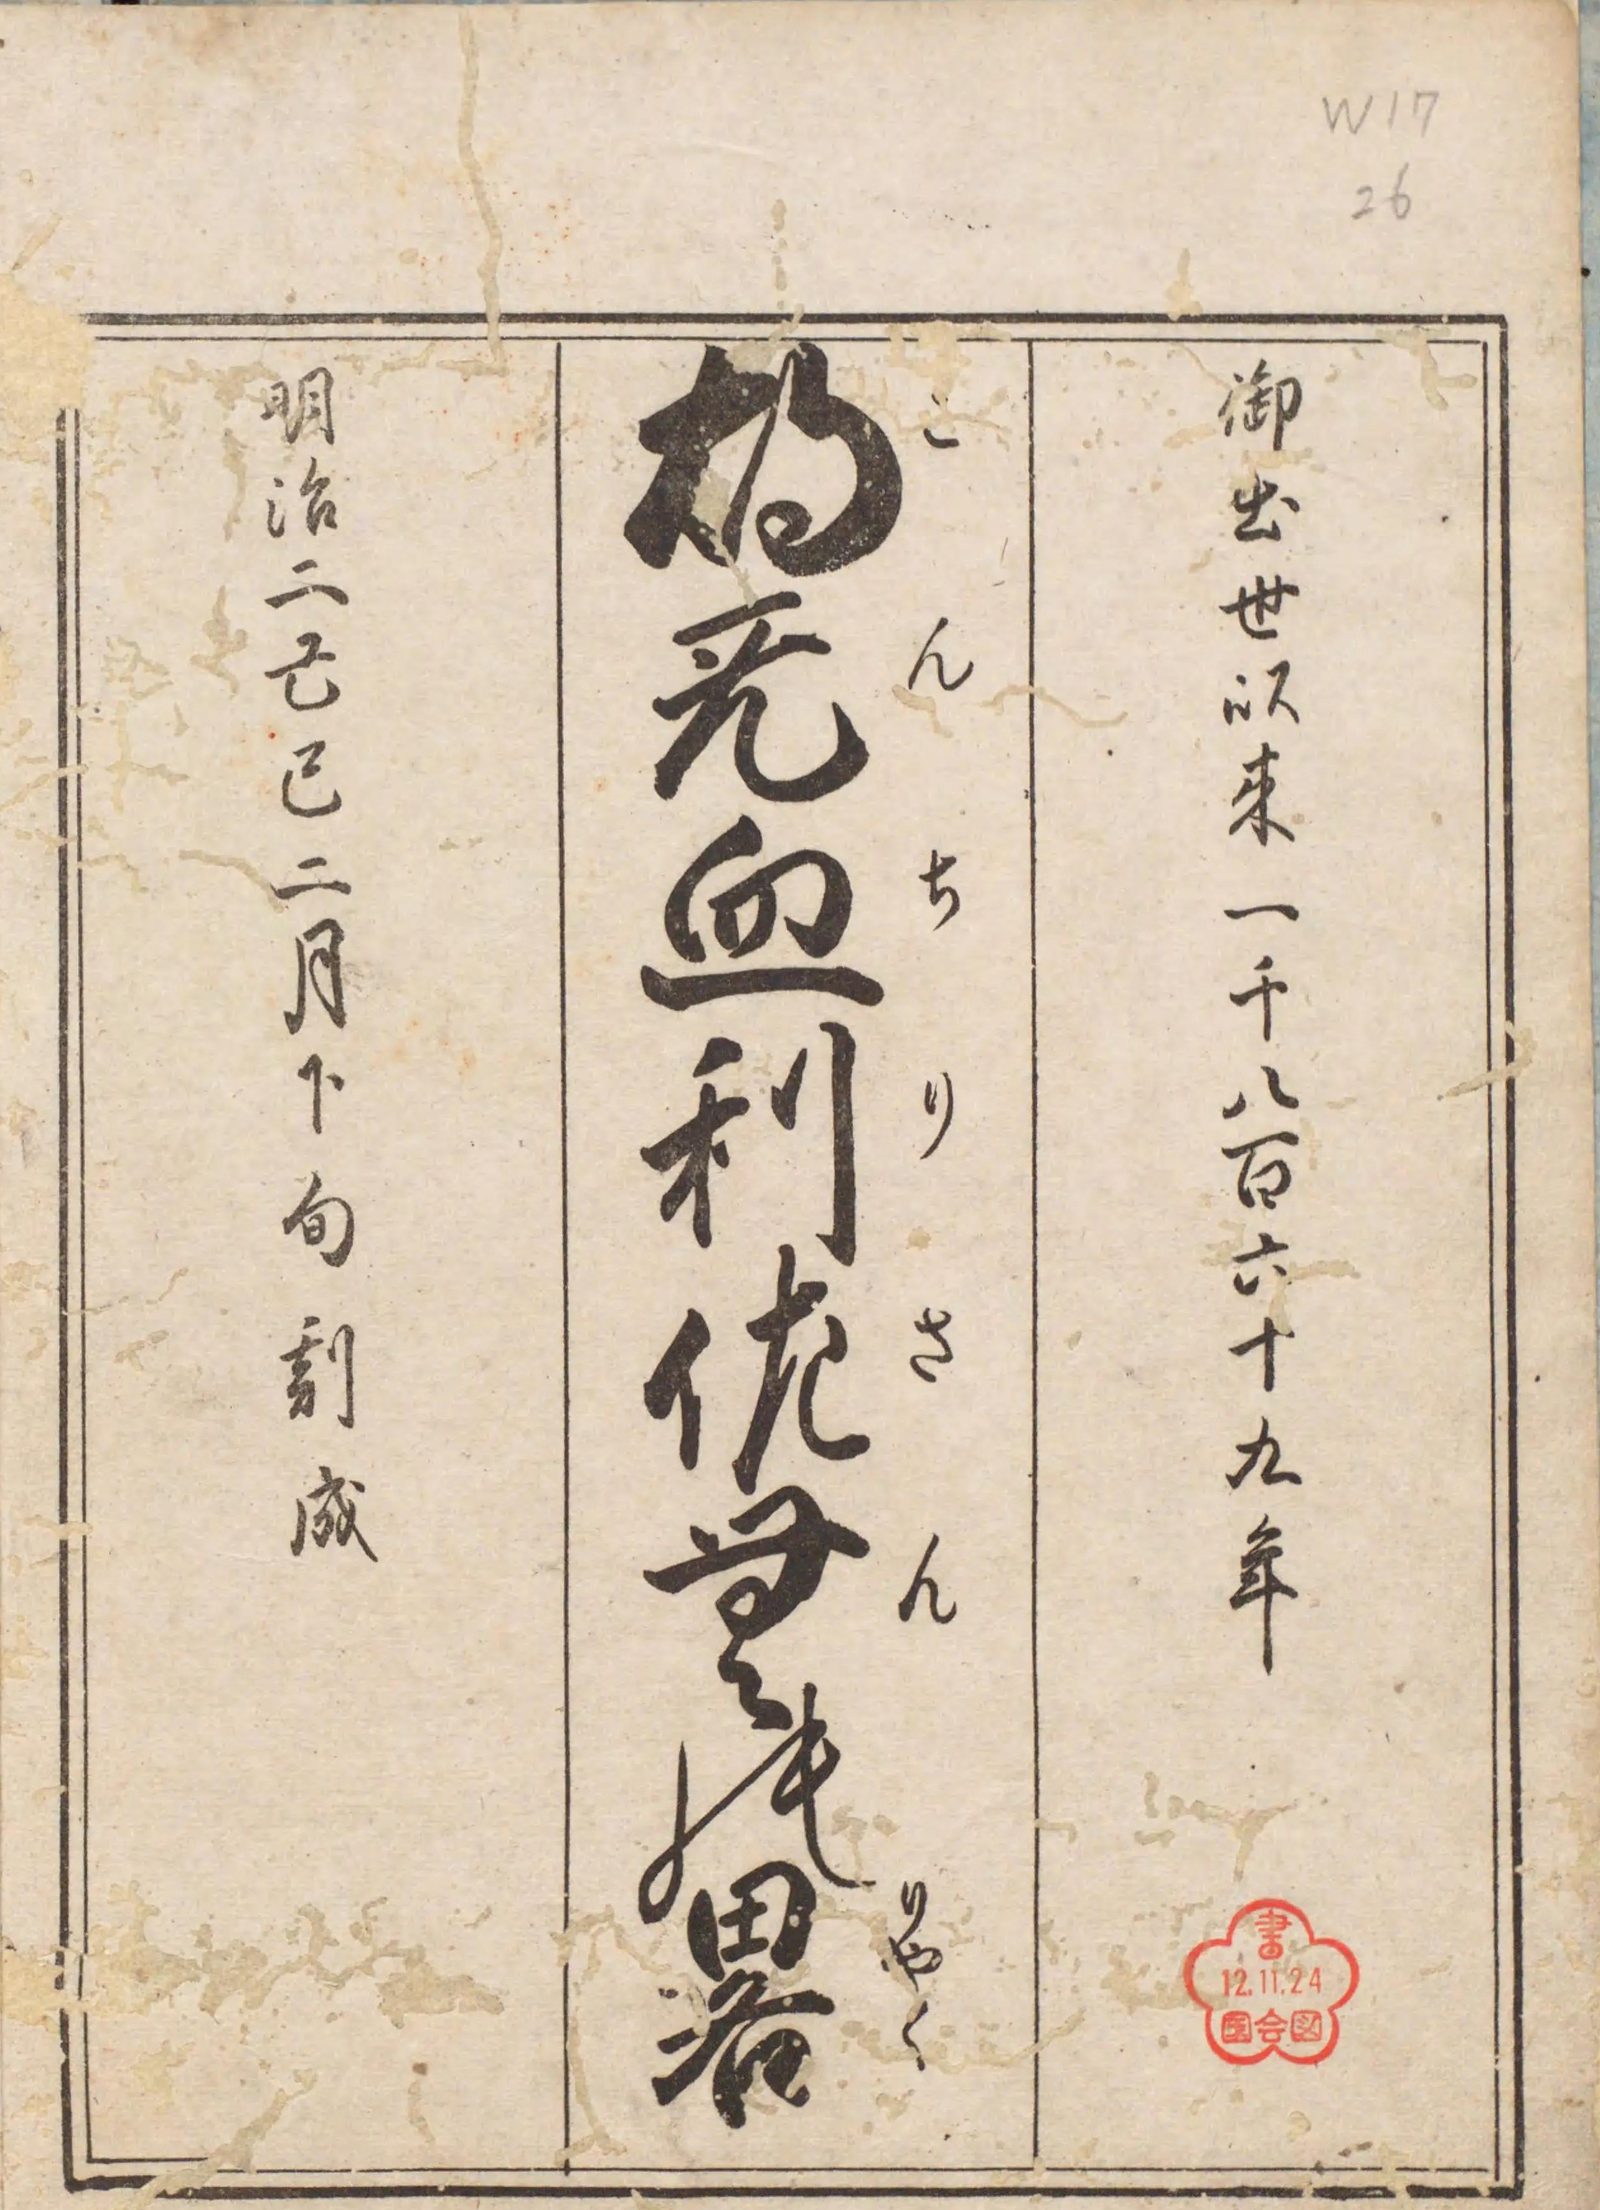 W17
26
御出世以来一千八百六十九年
こんちりさんりやく
胡无血利佐無能畧
明治二己巳二月下旬刻成
書
12.11.24
国会図